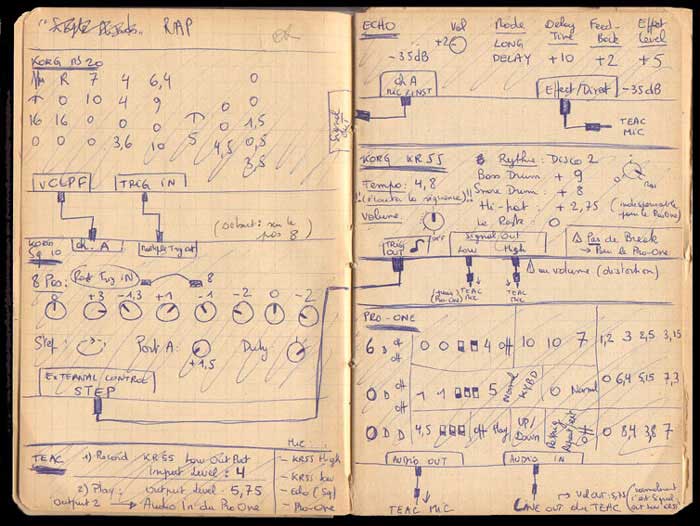 RAP
OK
KORG MS 20
R 7 4 6,4 0
0 10 4 9 0 0
16 16 0 0 0 0 1,5
0 0 0 3,6 10 5 4,5 0,5
3,5
Signal out
VCLPF
TRIG IN
(début: sur le pos 8)
ch. A
Multiple Trig Out
KORG SQ 10
8 Pos:
Port Trig IN
8
0 +3 -1,3 +1 -1 -2 0 -2
Step:
Port A:
+1,5
Duty:
EXTERNAL CONTROL
STEP
TEAC
1) Record KR55 Low Out Put
Input Level: 4
2) Play: output level: 5,75
output 2 → Audio In du Pro One
Mic
- KR55 High
- KR55 Low
- Echo (Sq)
- Pro-One
ECHO
Vol
+2
Mode
Delay Time
Feed-Back
Effect Level
-35dB
LONG DELAY
+10
+2
+5
ch A
MIC / INST
Effect/Direct
-35dB
TEAC MIC
KORG KR55
Rythme: DISCO 2
Tempo: 4,8
Bass Drum: + 9
!!(écouter la séquence)!!
Snare Drum: + 8
Volume:
Hi-hat: + 2,75
(indispensable pour le ProOne)
Le Reste: 0
TRIG OUT
Signal Out
Low High
Δ Pas de Break
→ Pour le Pro-One
(puis) (Pro-One)
TEAC MIC
TEAC MIC
Δ au volume (distortion)
PRO-ONE
6 0 0 4 off 10 10 7 1,2 3 2,5 3,15
0 D off 5 Normal KYBD 0 Normal 0 6,4 5,15 7,3
0 D D 4,5 off Play UP/Down off 0 8,4 3,8 7
AUDIO OUT
AUDIO IN
TEAC MIC
LINE OUT du TEAC
→ Vol OUT: 5,75